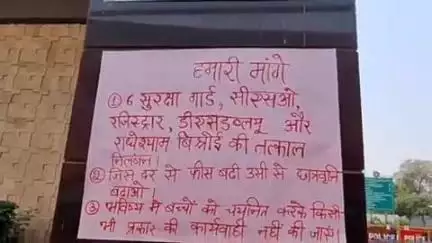 हमारी मांगे
① 6 सुरक्षा गार्ड, सीएसओ,
रजिस्ट्रार, डीएसडब्ल्यू और
राधेश्याम बिश्नोई की तत्काल
निलंबन।
② जिस दर से फीस बढी उसी से छात्रवृति
बढाओ।
③ भविष्य में बच्चों को चयनित करके किसी
भी प्रकार की कार्यवाही नहीं की जाए।
POLICE
POLICE